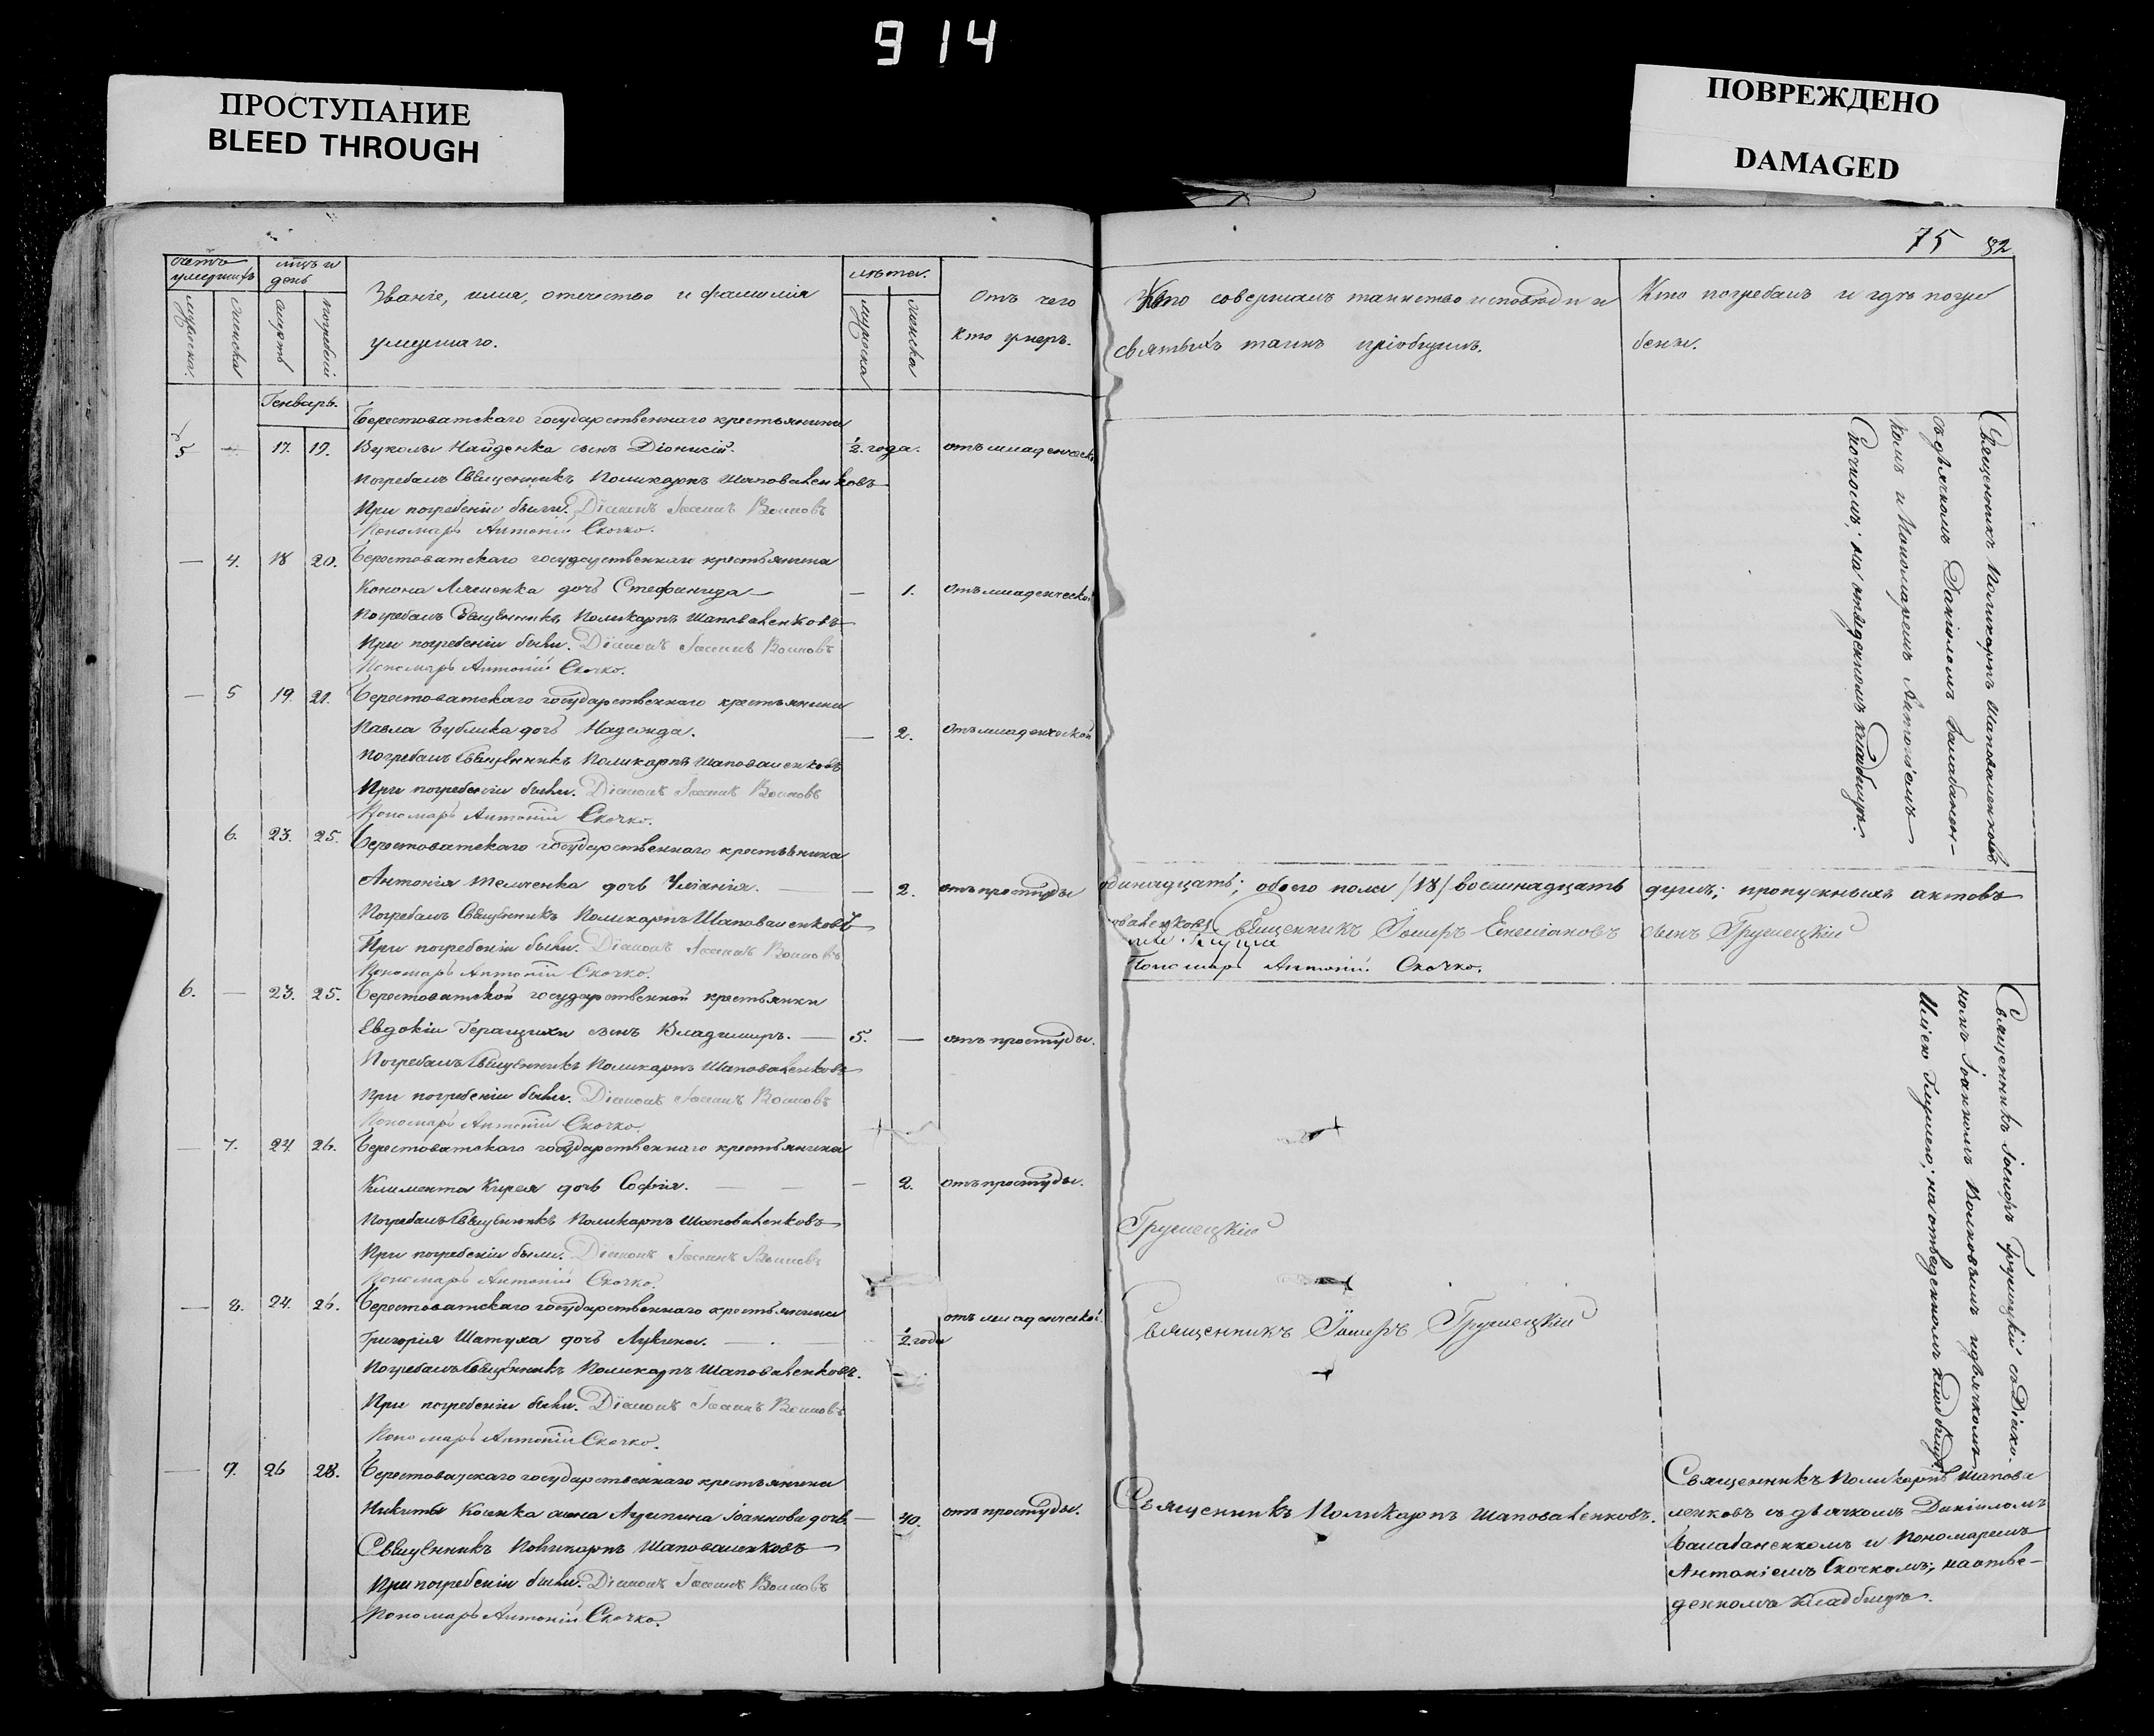 914
ПРОСТУПАНИЕ
BLEED THROUGH
ПОВРЕЖДЕНО
DAMAGED
75 82
счетъ умершихъ
мужеска.
женска
мцъ и день
смерть
погребенія
Званіе, имя, отчество и фамилія
умершаго.
лѣта.
мужеска
женска
Отъ чего
кто умеръ.
Генварь.
Берестоватскаго государственнаго крестьянина
5 — 17. 19. Вукола Найденка сынъ Діонисій. ½ года. отъ младенческ
Погребалъ Священникъ Поликарпъ Шаповаленковъ
При погребеніи были. Діаконъ Іоаннъ Волковъ
Пономарь Антоній Скочко.
— 4. 18 20. Берестоватскаго государственнаго крестьянина
Конона Ляшенка дочь Стефанида — — 1. Отъ младенческой
Погребалъ Священникъ Поликарпъ Шаповаленковъ
При погребеніи были. Діаконъ Іоаннъ Волковъ
Пономарь Антоній Скочко.
— 5 19. 21. Берестоватскаго государственнаго крестьянина
Павла Бублика дочь Надежда. — 2. Отъ младенческой
Погребалъ Священникъ Поликарпъ Шаповаленковъ
При погребеніи были. Діаконъ Іоаннъ Волковъ
Пономарь Антоній Скочко.
6. 23. 25. Берестоватскаго государственнаго крестьянина
Антонія дочь Уліанія. — — 2. отъ простуды
Погребалъ Священникъ Поликарпъ Шаповаленковъ
При погребеніи были. Діаконъ Іоаннъ Волковъ
Пономарь Антоній Скочко.
6. — 23. 25. Берестоватской государственной крестьянки
Евдокіи Геращихи сынъ Владимиръ. — 5. — отъ простуды.
Погребалъ Священникъ Поликарпъ Шаповаленковъ
При погребеніи были. Діаконъ Іоаннъ Волковъ
Пономарь Антоній Скочко.
— 7. 24. 26. Берестоватскаго государственнаго крестьянина
Климента Кирея дочь Софія. — — — 2. отъ простуды.
Погребалъ Священникъ Поликарпъ Шаповаленковъ
При погребеніи были. Діаконъ Іоаннъ Волковъ
Пономарь Антоній Скочко.
— 8. 24. 26. Берестоватскаго государственнаго крестьянина отъ младенческой
Григорія Шатуха дочь Лукина. — ½ года
Погребалъ Священникъ Поликарпъ Шаповаленковъ.
При погребеніи были. Діаконъ Іоаннъ Волковъ
Пономарь Антоній Скочко.
— 9. 26 28. Берестоватскаго государственнаго крестьянина
Никиты жена Агрипина Іоаннова дочь — 40. отъ простуды.
Священникъ Поликарпъ Шаповаленковъ
При погребеніи были. Діаконъ Іоаннъ Волковъ
Пономарь Антоній Скочко.
Кто совершалъ таинство исповѣди и
святыхъ таинъ пріобщилъ.
Кто погребалъ и гдѣ погре
бенъ.
Священникъ Поликарпъ Шаповаленковъ
съ дьячкомъ Даніиломъ Балабанен-
комъ и Пономаремъ Антоніемъ
Скочкомъ; на отведенномъ кладбищѣ.
одинадцать; обоего пола /18/ восемнадцать душъ; пропускныхъ актовъ
оваленковъ Священникъ Іосифъ сынъ Грушецкій
Пономарь Антоній Скочко.
Священникъ Іосифъ Грушецкій съ Діако-
номъ Іоанномъ Волковымъ и дьячкомъ
на отведенномъ кладбищѣ.
Грушецкій
Священникъ Іосифъ Грушецкій
Священникъ Поликарпъ Шаповаленковъ.
Священникъ Поликарпъ Шапова
ленковъ съ дьячкомъ Даніиломъ
Балабаненкомъ и Пономаремъ
Антоніемъ Скочкомъ; на отве-
денномъ кладбищѣ.